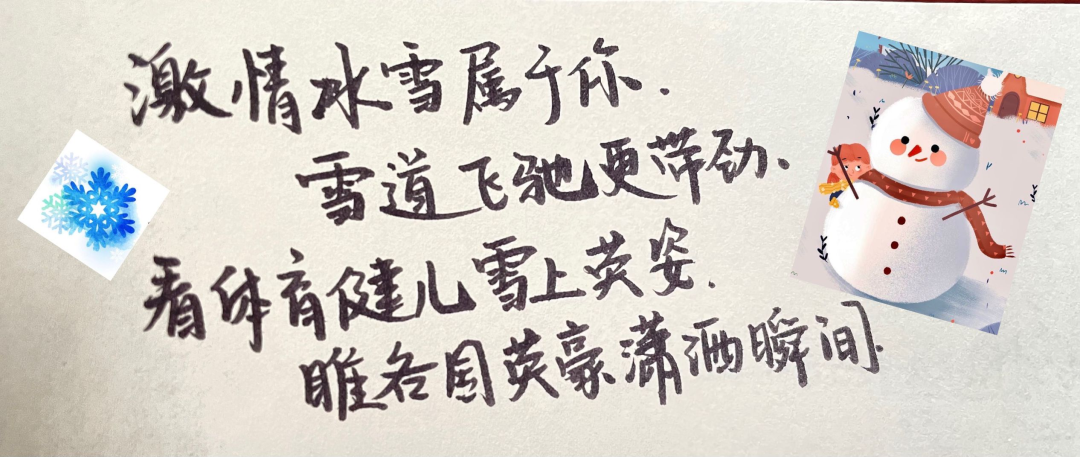 激情冰雪属于你.
雪道飞驰更带劲、
看体育健儿雪上英姿.
睢各国英豪潇洒瞬间.